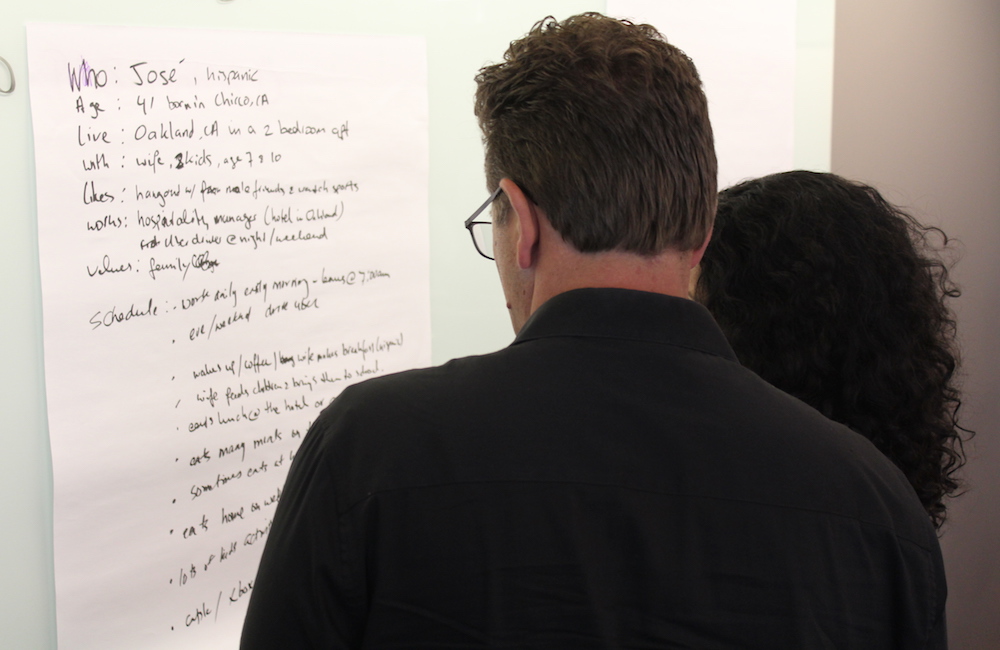 Who: José, hispanic
Age: 41 born in Chicco, CA
Live: Oakland, CA in a 2 bedroom apt
with: wife, 2 kids, age 7 & 10
likes: hangout w/ male friends & watch sports
works: hospitality manager (hotel in Oakland)
uber driver @ night/weekend
values: family/
Schedule: - work daily early morning - leaves @ 7:00am
• eve/weekend drive uber
• wakes up/coffee/ wife makes breakfast
/ wife feeds children & brings them to school.
• eats lunch @ the hotel or
• eats many meals on
• sometimes eats at
• eats home on
• lots of kids
• cable / xbox